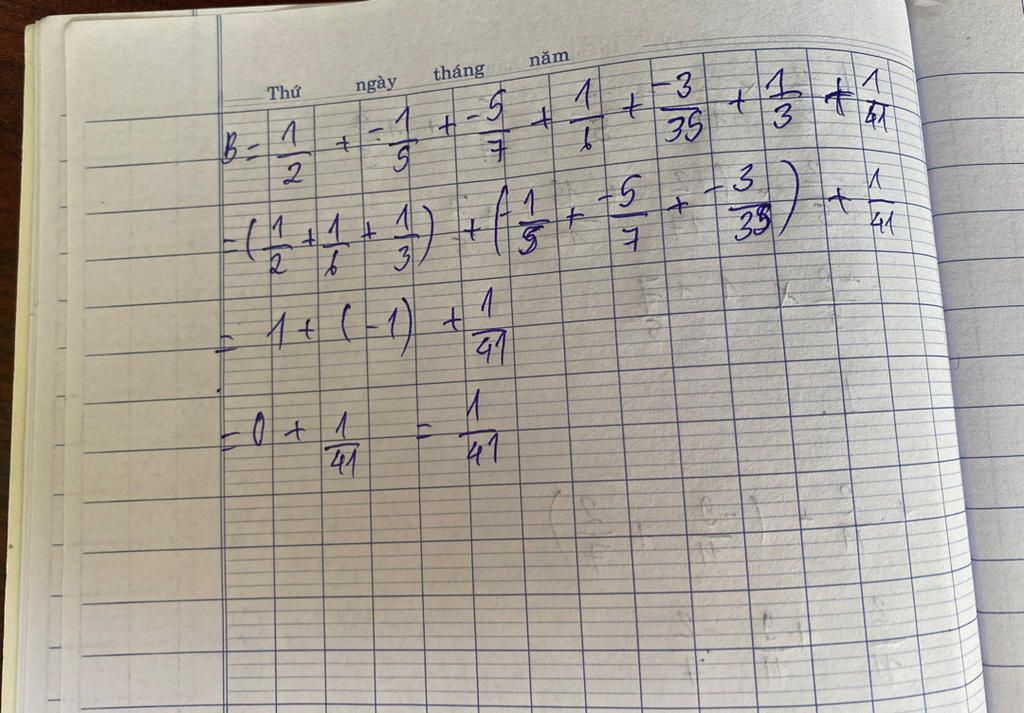 Thứ ngày tháng năm
B = 1/2 + -1/5 + -5/7 + 1/6 + -3/35 + 1/3 + 1/41
= (1/2 + 1/6 + 1/3) + (-1/5 + -5/7 + -3/35) + 1/41
= 1 + (-1) + 1/41
= 0 + 1/41 = 1/41